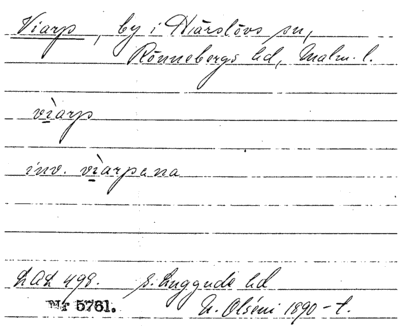 Viarp, by i Härslövs sn,
Rönnebergs hd, Malm. l.
viarp
inv. viarpana
LAL 498. s. Luggude hd
Nr 5761. N. Olséni 1890-t.